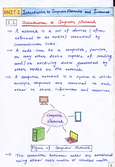 UNIT-1 Introduction to Computer Network and Internet
1.1 Introduction to Computer Network
→ A network is a set of devices (often
referred to as nodes) connected by
communication links.
→ A node can be a computer, printer,
or any other device capable of sending
and/or receiving data generated by
other nodes in the network.
→ A computer network is a system in which
multiple computers are connected to each
other to share information and resources.
Computer Network
Figure of Computer Network